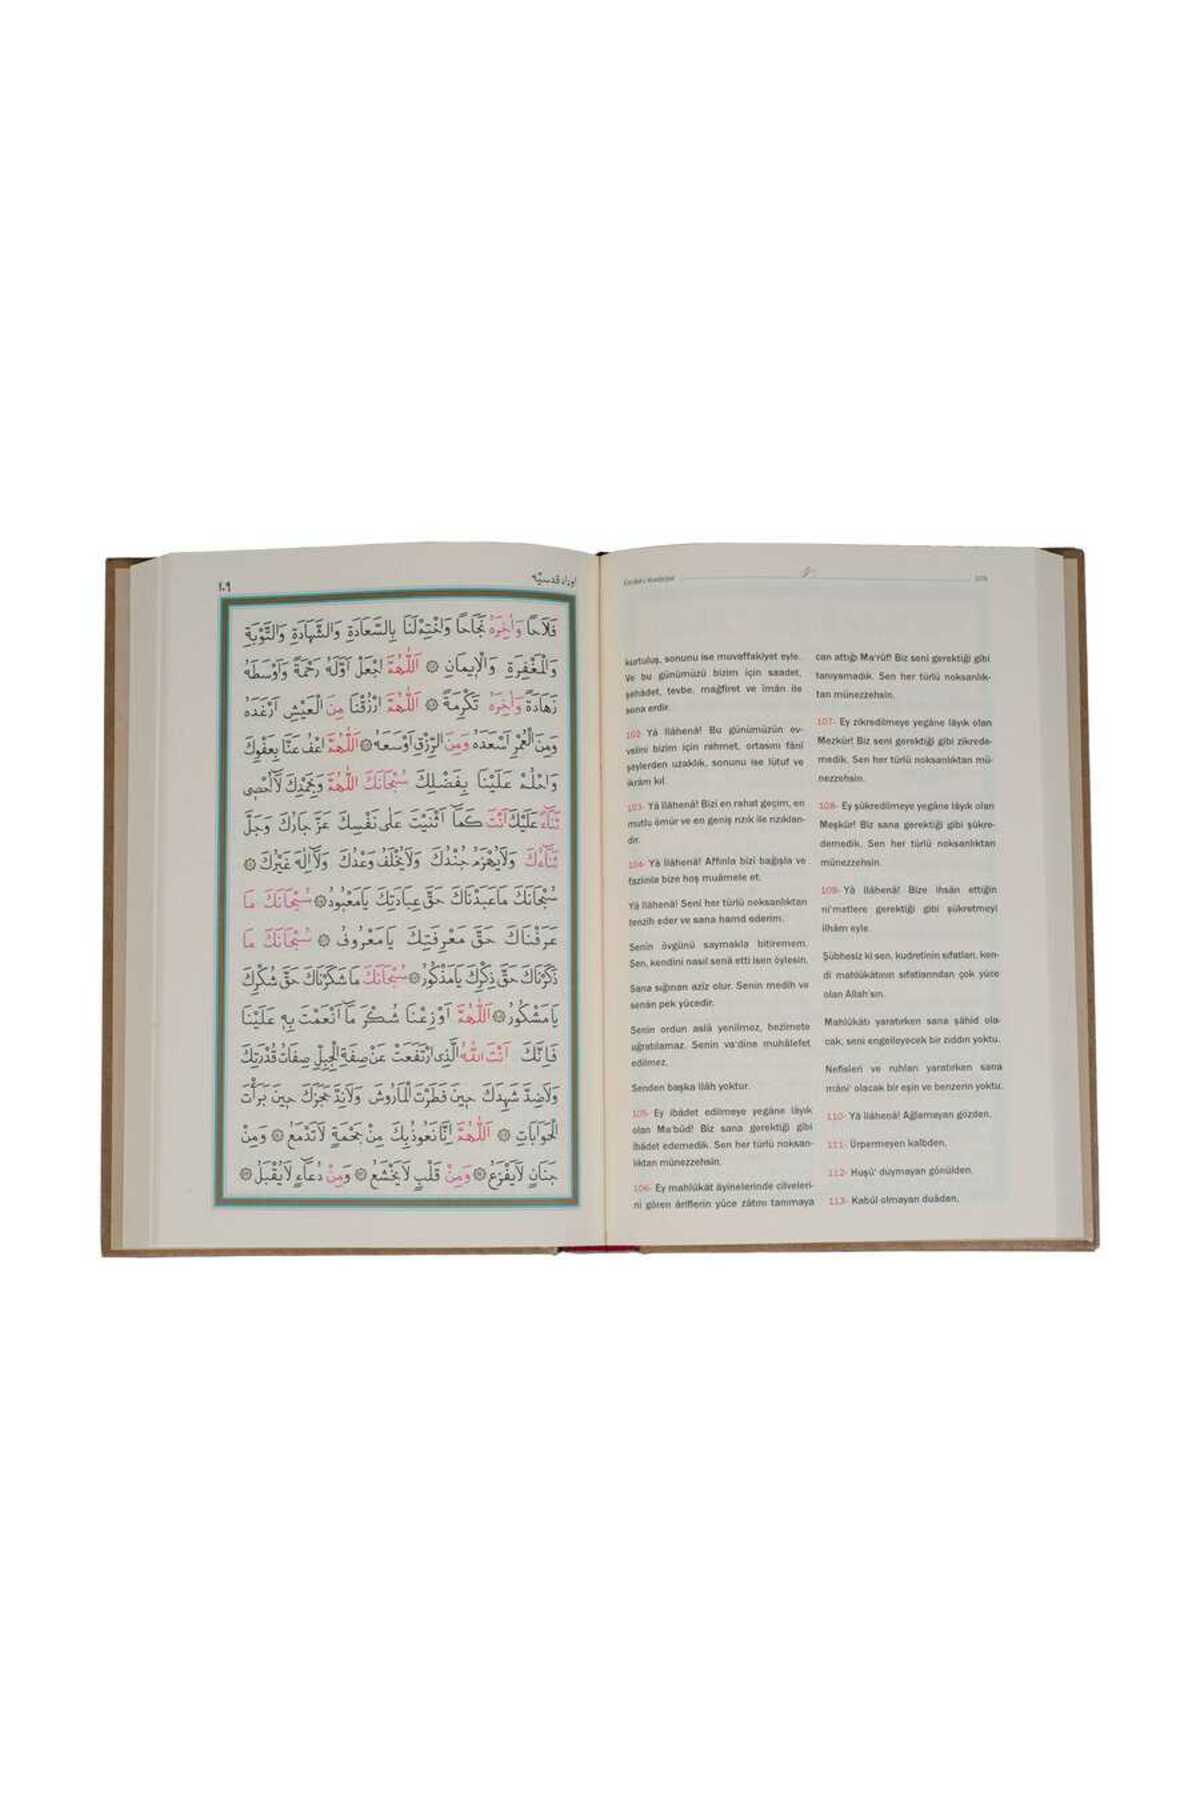 اوراد قدسيّه
١٠٩
فَلَاحًا وَاٰخِرَهُ نَجَاحًا وَاخْتِمْ لَنَا بِالسَّعَادَةِ وَالشَّهَادَةِ وَالتَّوْبَةِ
وَالْمَغْفِرَةِ وَالْاِيمَانِ ۞ اَللّٰهُمَّ اجْعَلْ اَوَّلَهُ رَحْمَةً وَاَوْسَطَهُ
زَهَادَةً وَاٰخِرَهُ تَكْرِمَةً ۞ اَللّٰهُمَّ ارْزُقْنَا مِنَ الْعَيْشِ اَرْغَدَهُ
وَمِنَ الْعُمْرِ اَسْعَدَهُ وَمِنَ الرِّزْقِ اَوْسَعَهُ ۞ اَللّٰهُمَّ اعْفُ عَنَّا بِعَفْوِكَ
وَاحْلُمْ عَلَيْنَا بِفَضْلِكَ سُبْحَانَكَ اللّٰهُمَّ وَبِحَمْدِكَ لَٓا اُحْصِى
ثَنَٓاءً عَلَيْكَ اَنْتَ كَمَٓا اَثْنَيْتَ عَلٰى نَفْسِكَ عَزَّ جَارُكَ وَجَلَّ
ثَنَٓاؤُكَ وَلَا يُهْزَمُ جُنْدُكَ وَلَا يُخْلَفُ وَعْدُكَ وَلَٓا اِلٰهَ غَيْرُكَ ۞
سُبْحَانَكَ مَا عَبَدْنَاكَ حَقَّ عِبَادَتِكَ يَا مَعْبُودُ ۞ سُبْحَانَكَ مَا
عَرَفْنَاكَ حَقَّ مَعْرِفَتِكَ يَا مَعْرُوفُ ۞ سُبْحَانَكَ مَا
ذَكَرْنَاكَ حَقَّ ذِكْرِكَ يَا مَذْكُورُ ۞ سُبْحَانَكَ مَا شَكَرْنَاكَ حَقَّ شُكْرِكَ
يَا مَشْكُورُ ۞ اَللّٰهُمَّ اَوْزِعْنَا شُكْرَ مَٓا اَنْعَمْتَ بِهِ عَلَيْنَا
فَاِنَّكَ اَنْتَ اللّٰهُ الَّذِى ارْتَفَعَتْ عَنْ صِفَةِ الْجِبِلِّ صِفَاتُ قُدْرَتِكَ
وَلَا ضِدَّ شَهِدَكَ حِينَ فَطَرْتَ الْمَارُوشَ وَلَا نِدَّ حَجَزَكَ حِينَ بَرَأْتَ
الْحَوَابَاتِ ۞ اَللّٰهُمَّ اِنَّا نَعُوذُ بِكَ مِنْ جَحْمَةٍ لَا تَدْمَعُ ۞ وَمِنْ
جَنَانٍ لَا يَفْزَعُ ۞ وَمِنْ قَلْبٍ لَا يَخْشَعُ ۞ وَمِنْ دُعَٓاءٍ لَا يُقْبَلُ ۞
kurtuluş, sonunu ise muvaffakiyet eyle.
Ve bu günümüzü bizim için saadet,
şehâdet, tevbe, mağfiret ve îmân ile
sona erdir.
102- Yâ İlâhenâ! Bu günümüzün ev-
velini bizim için rahmet, ortasını fânî
şeylerden uzaklık, sonunu ise lütuf ve
ikrâm kıl.
103- Yâ İlâhenâ! Bizi en rahat geçim, en
mutlu ömür ve en geniş rızık ile rızıklan-
dır.
104- Yâ İlâhenâ! Affınla bizi bağışla ve
fazlınla bize hoş muâmele et.
Yâ İlâhenâ! Seni her türlü noksanlıktan
tenzîh eder ve sana hamd ederim.
Senin övgünü saymakla bitiremem.
Sen, kendini nasıl senâ etti isen öylesin.
Sana sığınan azîz olur. Senin medih ve
senân pek yücedir.
Senin ordun aslâ yenilmez, hezîmete
uğratılamaz. Senin va'dine muhâlefet
edilmez.
Senden başka ilâh yoktur.
105- Ey ibâdet edilmeye yegâne lâyık
olan Ma'bûd! Biz sana gerektiği gibi
ibâdet edemedik. Sen her türlü noksan-
lıktan münezzehsin.
106- Ey mahlûkât âyinelerinde cilveleri-
ni gören âriflerin yüce zâtını tanımaya
can attığı Ma'rûf! Biz seni gerektiği gibi
tanıyamadık. Sen her türlü noksanlık-
tan münezzehsin.
107- Ey zikredilmeye yegâne lâyık olan
Mezkûr! Biz seni gerektiği gibi zikrede-
medik. Sen her türlü noksanlıktan mü-
nezzehsin.
108- Ey şükredilmeye yegâne lâyık olan
Meşkûr! Biz sana gerektiği gibi şükre-
demedik. Sen her türlü noksanlıktan
münezzehsin.
109- Yâ İlâhenâ! Bize ihsân ettiğin
ni'metlere gerektiği gibi şükretmeyi
ilhâm eyle.
Şübhesiz ki sen, kudretinin sıfatları, ken-
di mahlûkâtının sıfatlarından çok yüce
olan Allah'sın.
Mahlûkâtı yaratırken sana şâhid ola-
cak, seni engelleyecek bir zıddın yoktu.
Nefisleri ve ruhları yaratırken sana
mâni' olacak bir eşin ve benzerin yoktu.
110- Yâ İlâhenâ! Ağlamayan gözden,
111- Ürpermeyen kalbden,
112- Huşû' duymayan gönülden,
113- Kabûl olmayan duâdan,